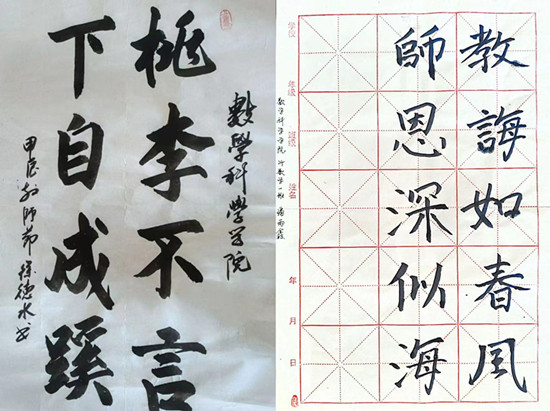 數學科學学院
桃李不言
下自成蹊
甲辰教师节徐德水书
教誨如春風
師恩深似海
学校
年级
班级
姓名
年 月 日
数学科学学院